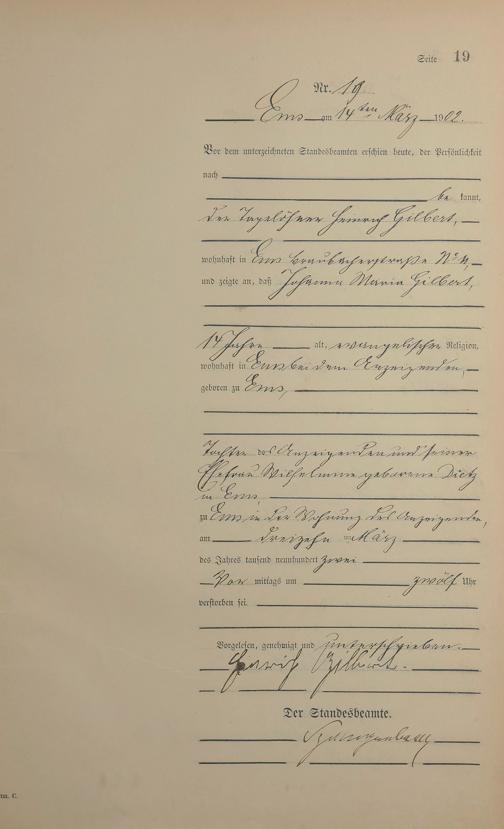 Seite 19
Nr. 19
Ems am 14ten März 1902.
Vor dem unterzeichneten Standesbeamten erschien heute, der Persönlichkeit
nach
be kannt,
der Tagelöhner Heinrich Gilbert,
wohnhaft in Ems Braubacherstraße No 4,
und zeigte an, daß Johanna Maria Gilbert,
14 Jahre alt, evangelischer Religion,
wohnhaft in Ems bei dem Anzeigenden,
geboren zu Ems,
Tochter des Anzeigenden und seiner
Ehefrau Wilhelmine geborene Dietz
in Ems,
zu Ems in der Wohnung des Anzeigenden,
am dreizehn ten März
des Jahres tausend neunhundert zwei
Vor mittags um zwölf Uhr
verstorben sei.
Vorgelesen, genehmigt und unterschrieben.
Gilbert.
Der Standesbeamte.